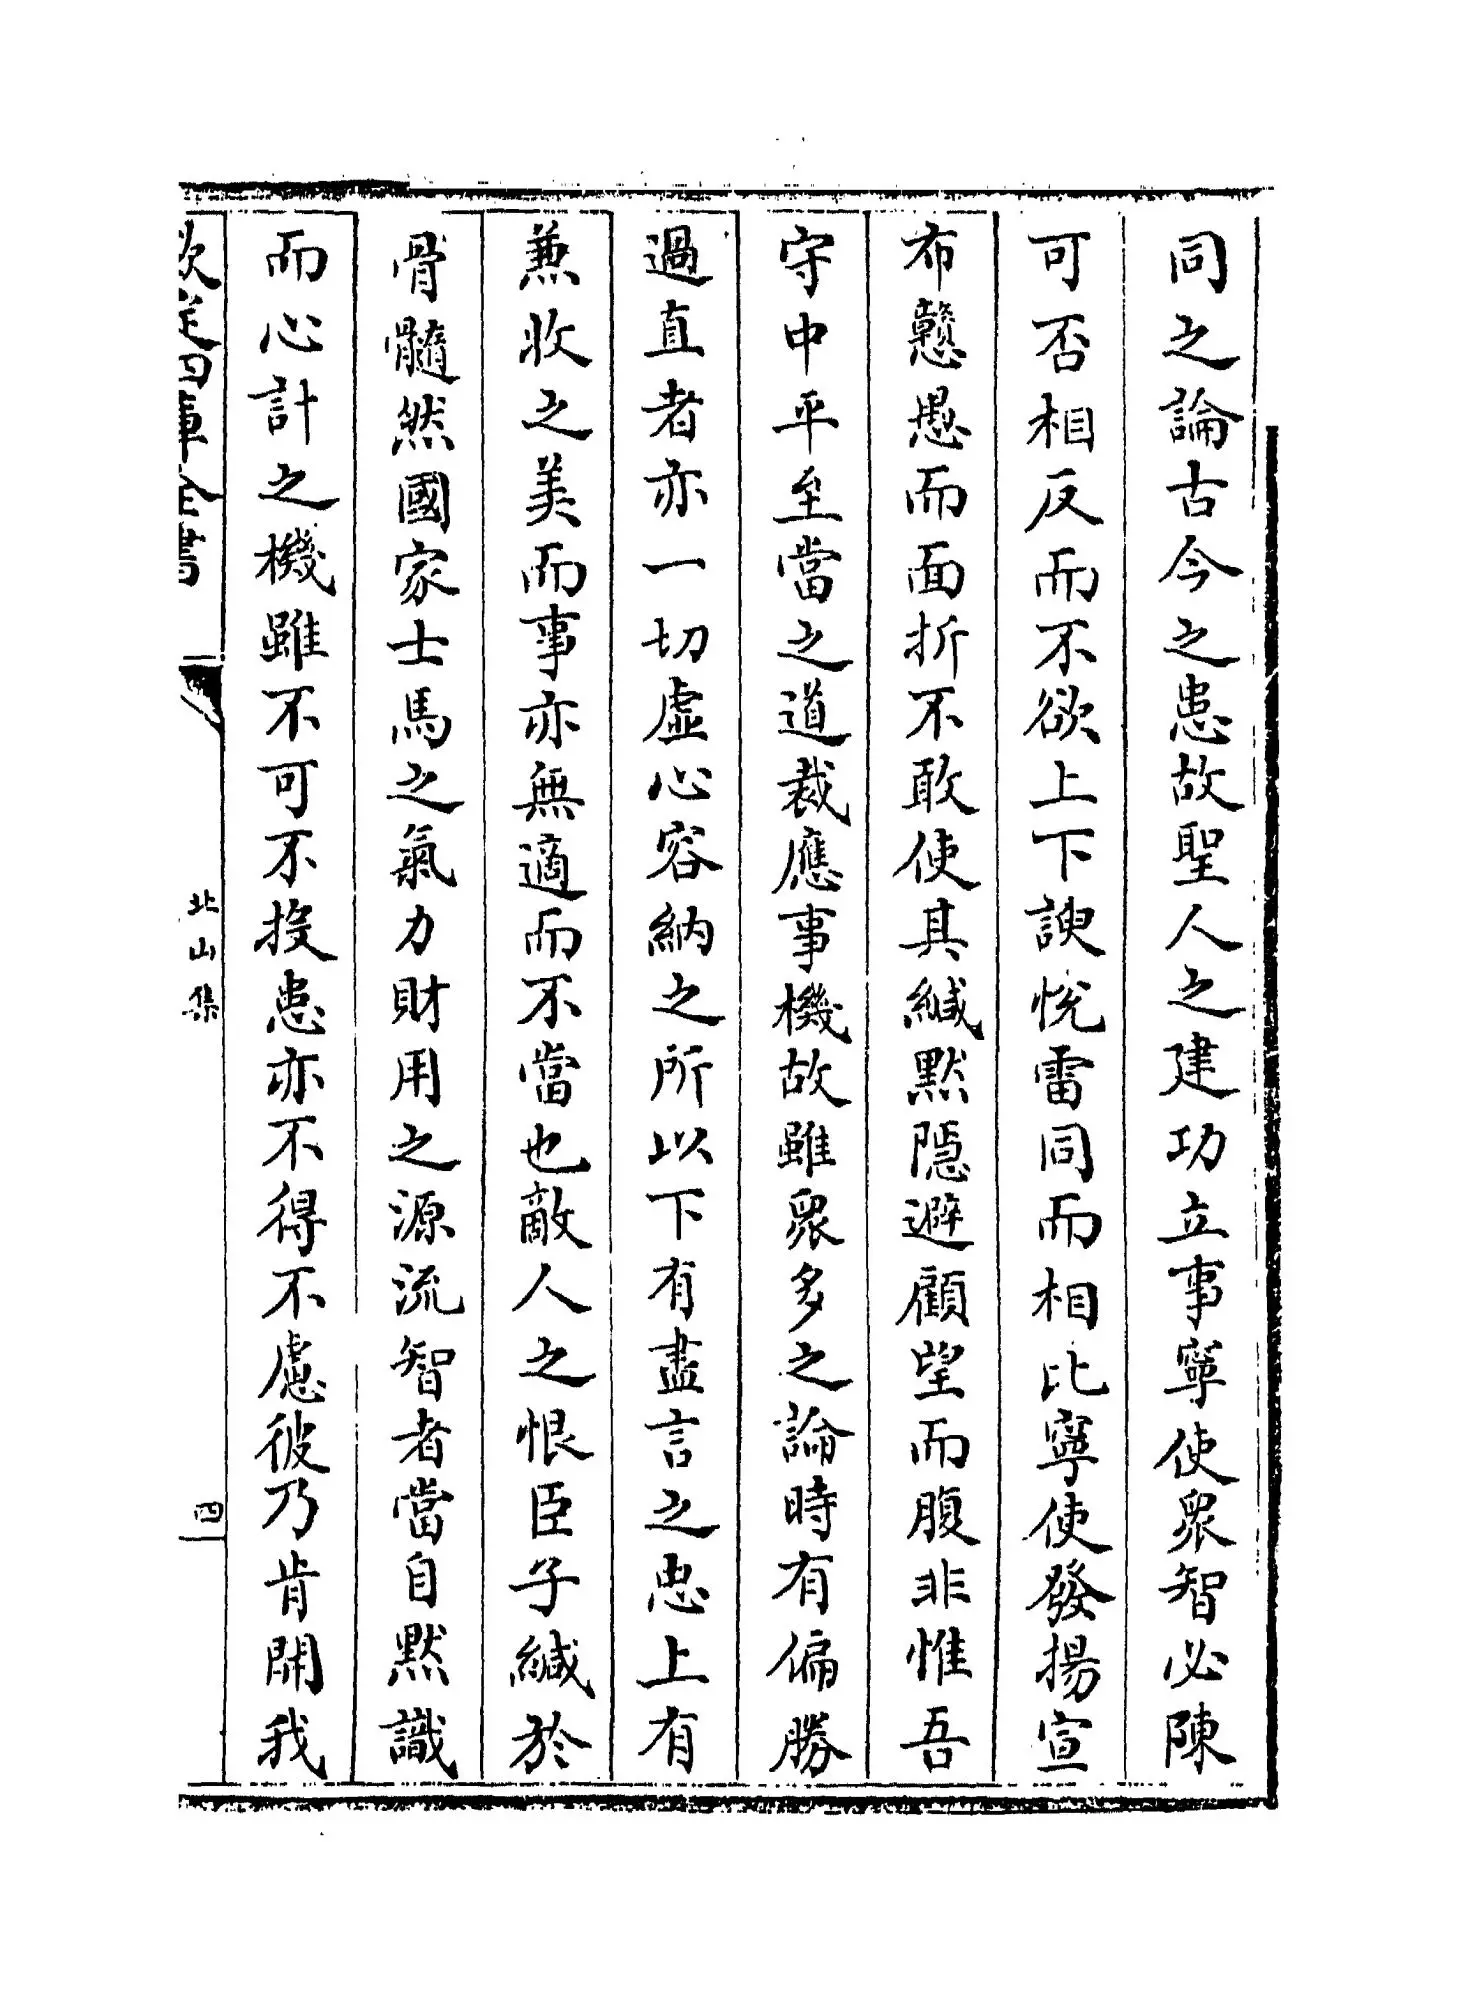 同之論古今之患故聖人之建功立事寧使衆智必陳
可否相反而不欲上下諛悅雷同而相比寧使發揚宣
布戇愚而面折不敢使其緘默隱避顧望而腹非惟吾
守中平至當之道裁應事機故雖衆多之論時有偏勝
過直者亦一切虛心容納之所以下有盡言之忠上有
兼收之美而事亦無適而不當也敵人之恨臣子緘於
骨髓然國家士馬之氣力財用之源流智者當自默識
而心計之機雖不可不投患亦不得不慮彼乃肯開我
欽定四庫全書
北山集
四